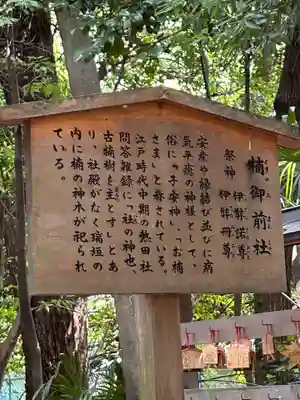 楠御前社
祭神 伊弉諾尊
伊弉冉尊
安産や縁結び並びに病
気平癒の神様として、
俗に「子安神」、「お楠
さま」と称されている。
江戸時代中期の熱田社
問答雑録に「社の神也、
古楠樹を主とす」とあ
り、社殿がなく瑞垣の
内に楠の神木が祀られ
ている。